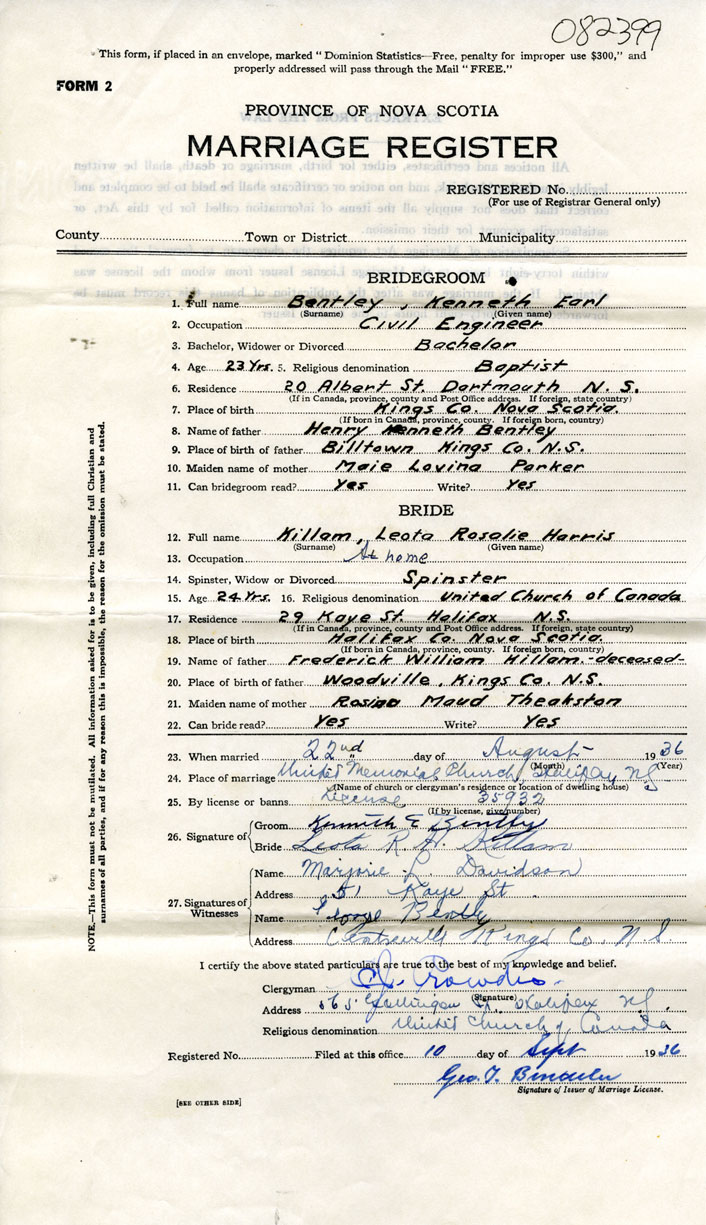 082399
This form, if placed in an envelope, marked "Dominion Statistics—Free, penalty for improper use $300," and
properly addressed will pass through the Mail "FREE."
FORM 2
PROVINCE OF NOVA SCOTIA
MARRIAGE REGISTER
REGISTERED No.
(For use of Registrar General only)
County Town or District Municipality
BRIDEGROOM
1. Full name Bentley, Kenneth Earl
(Surname) (Given name)
2. Occupation Civil Engineer
3. Bachelor, Widower or Divorced Bachelor
4. Age 23 Yrs. 5. Religious denomination Baptist
6. Residence 20 Albert St. Dartmouth N. S.
(If in Canada, province, county and Post Office address. If foreign, state country)
7. Place of birth Kings Co. Nova Scotia.
(If born in Canada, province, county. If foreign born, country)
8. Name of father Henry Kenneth Bentley
9. Place of birth of father Billtown Kings Co. N.S.
10. Maiden name of mother Maie Lovina Parker
11. Can bridegroom read? Yes Write? Yes
BRIDE
12. Full name Killam, Leota Rosalie Harris
(Surname) (Given name)
13. Occupation At home
14. Spinster, Widow or Divorced Spinster
15. Age 24 Yrs. 16. Religious denomination United Church of Canada
17. Residence 29 Kaye St. Halifax N.S.
(If in Canada, province, county and Post Office address. If foreign, state country)
18. Place of birth Halifax Co. Nova Scotia.
(If born in Canada, province, county. If foreign born, country)
19. Name of father Frederick William Killam.-deceased-
20. Place of birth of father Woodville, Kings Co. N.S.
21. Maiden name of mother Rosina Maud Theakston
22. Can bride read? Yes Write? Yes
23. When married 22nd day of August 1936
(Month) (Year)
24. Place of marriage United Memorial Church, Halifax NS
(Name of church or clergyman's residence or location of dwelling house)
25. By license or banns License 35932
(If by license, give number)
26. Signature of Groom Kenneth E Bentley
Bride Leota R. H. Killam
27. Signatures of Witnesses Name Marjorie L. Davidson
Address 51 Kaye St.
Name George Bently
Address Centreville Kings Co. N S
I certify the above stated particulars are true to the best of my knowledge and belief.
Clergyman
(Signature)
Address St. Halifax NS.
Religious denomination United Church of Canada
Registered No. Filed at this office 10 day of Sept 1936
Geo. T.
Signature of Issuer of Marriage License.
[SEE OTHER SIDE]
NOTE.—This form must not be mutilated. All information asked for is to be given, including full Christian and
surnames of all parties, and if for any reason this is impossible, the reason for the omission must be stated.